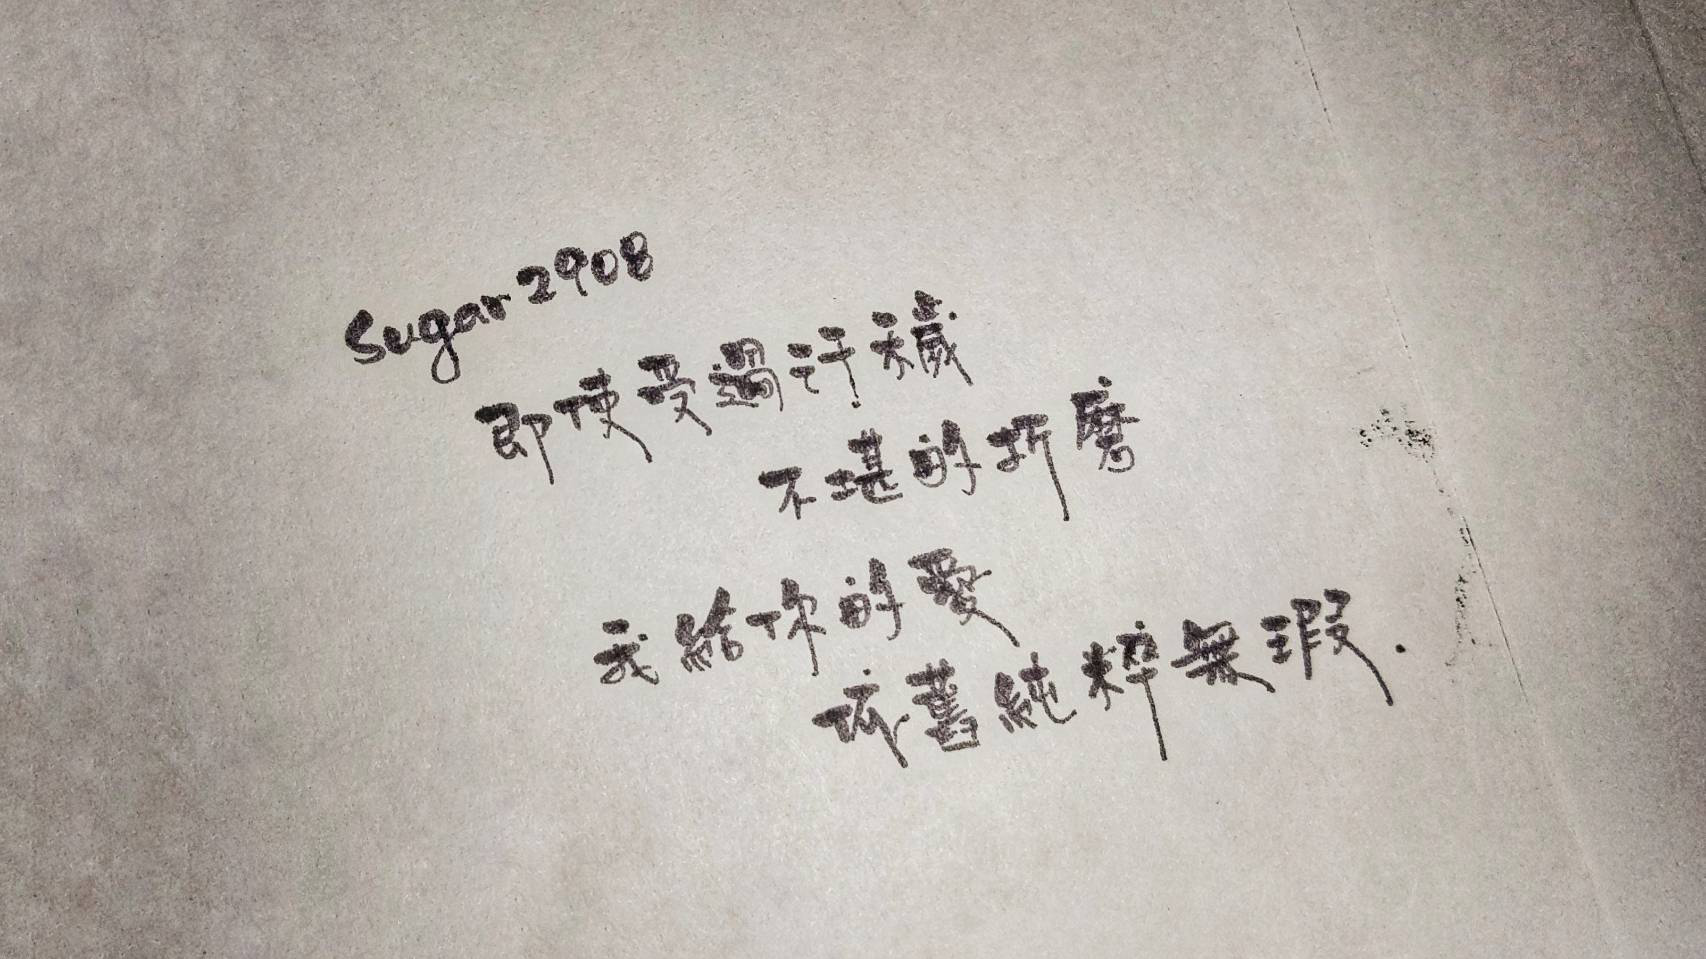 Sugar2908
即使受過汙穢
不堪的折磨
我給你的愛
依舊純粹無瑕.